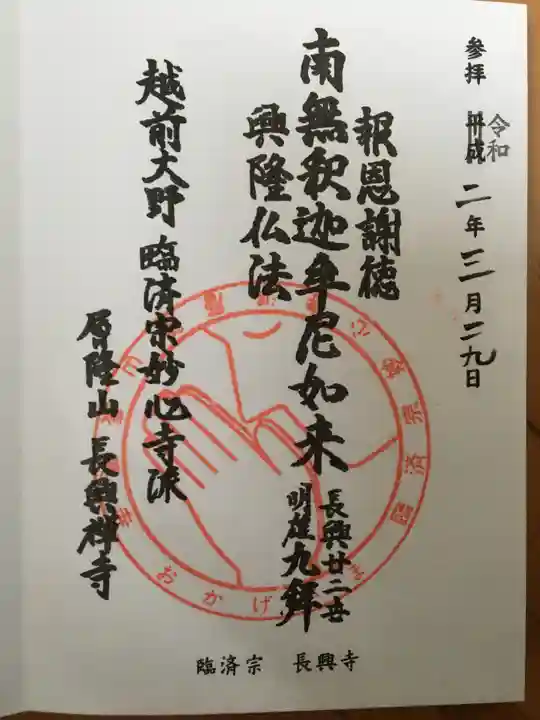 参拝 平成 令和 二年三月二九日
報恩謝徳
南無釈迦牟尼如来
興隆仏法
長興廿二世
明雄九拝
越前大野 臨済宗妙心寺派
長興禅寺
おかげ
臨済宗
臨済宗 長興寺